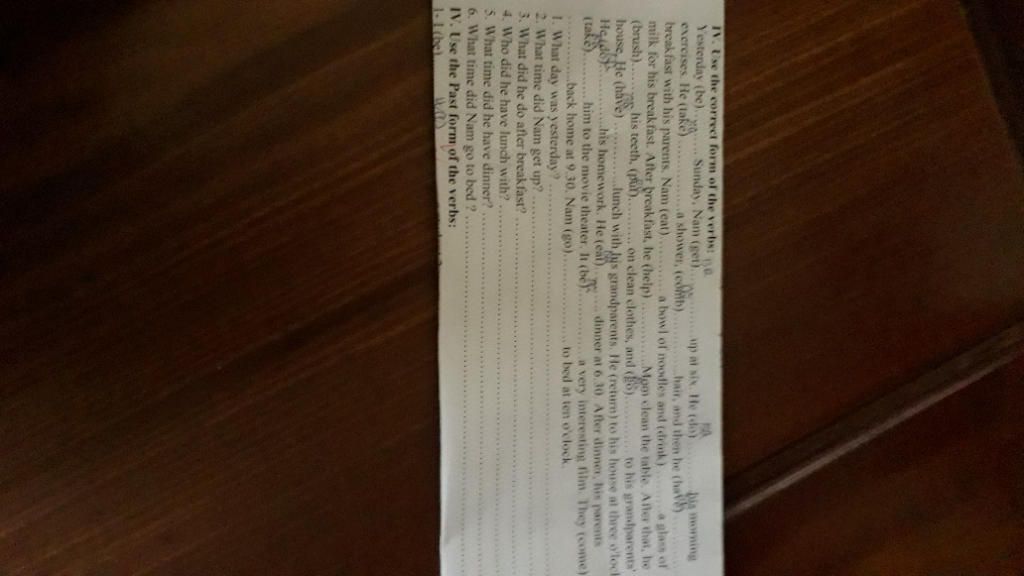 IV. Use the correct form of the verbs:
Yesterday (be)......... Sunday, Nam (get)............ up at six. He (do)............ his morning
exercises. He (take)............ a shower, (comb)............ hair, and then he (have)............
breakfast with his parents. Nam (eat)............ a bowl of noodles and (drink)......... a glass of
milk for his breakfast. After breakfast, he (help)............ Mom clean the table. After that, he
(brush)......... his teeth, (put)......... on clean clothes, and (go)......... to his grandparents'
house. He (have)............ lunch with his grandparents. He (return) to his house at three o'cloc
He (do)............ his homework. He (eat)......... dinner at 6.30. After dinner, his parents
(take)............ him to the movie theater. It (be)............ a very interesting film. They (come)
............back home at 9.30. Nam (go)............ to bed at ten o'clock.
1. What day was yesterday? ............
2. What time did Nam get up? ............
3. What did he do after breakfast? ............
4. Who did he have lunch with? ............
5. What time did he have dinner? ............
6. What time did Nam go to bed ? ............
IV. Use the Past form of the verbs:
1- I (be)